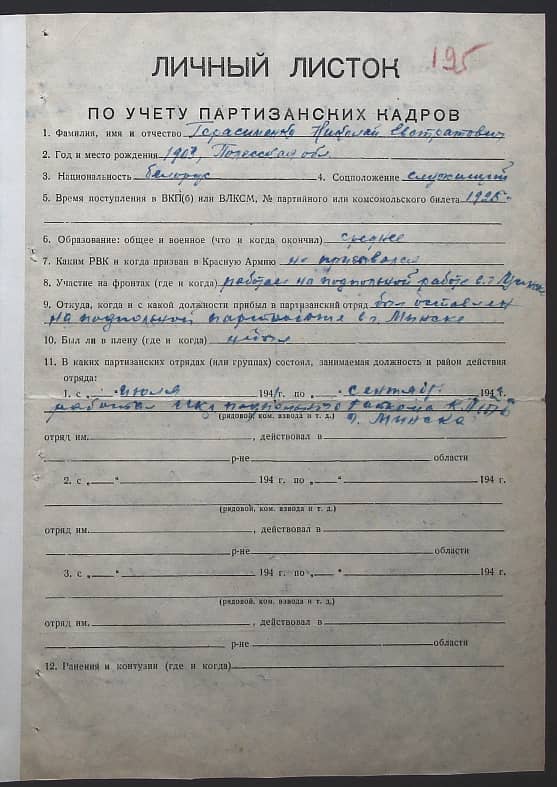 195
ЛИЧНЫЙ ЛИСТОК
ПО УЧЕТУ ПАРТИЗАНСКИХ КАДРОВ
1. Фамилия, имя и отчество Герасименко Николай Евстратович
2. Год и место рождения 1907, Полесская обл
3. Национальность белорус 4. Соцположение служащий
5. Время поступления в ВКП(б) или ВЛКСМ, № партийного или комсомольского билета 1926
6. Образование: общее и военное (что и когда окончил) среднее
7. Каким РВК и когда призван в Красную Армию не призывался
8. Участие на фронтах (где и когда) работал на подпольной работе в г. Минске
9. Откуда, когда и с какой должности прибыл в партизанский отряд был оставлен
на подпольной партработе в г. Минске
10. Был ли в плену (где и когда)
11. В каких партизанских отрядах (или группах) состоял, занимаемая должность и район действия
отряда:
1. с „ июля 1941 г. по „ сентябрь 194 г.
работал подпольного райкома КП(б)Б
(рядовой, ком. взвода и т. д.) г. Минска
отряд им. , действовал в
р-не области
2. с „ “ 194 г. по „ “ 194 г.
(рядовой, ком. взвода и т. д.)
отряд им. , действовал в
р-не области
3. с „ “ 194 г. по „ “ 194 г.
(рядовой, ком. взвода и т. д.)
отряд им. , действовал в
р-не области
12. Ранения и контузии (где и когда)